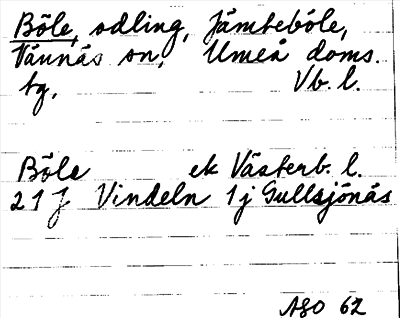 Böle, odling, Jämteböle,
Tavnäs sn, Umeå doms.
tg, Vb. l.
Böle ek Västerb. l.
21 J Vindeln 1j Gullsjönäs
ASO 62